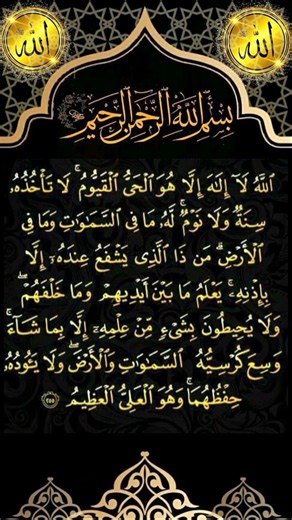 الله
الله
بِسْمِ اللَّهِ الرَّحْمَٰنِ الرَّحِيمِ
ٱللَّهُ لَآ إِلَـٰهَ إِلَّا هُوَ ٱلْحَىُّ ٱلْقَيُّومُ ۚ لَا تَأْخُذُهُۥ
سِنَةٌ وَلَا نَوْمٌ ۚ لَّهُۥ مَا فِى ٱلسَّمَـٰوَٰتِ وَمَا فِى
ٱلْأَرْضِ ۗ مَن ذَا ٱلَّذِى يَشْفَعُ عِندَهُۥٓ إِلَّا
بِإِذْنِهِۦ ۚ يَعْلَمُ مَا بَيْنَ أَيْدِيهِمْ وَمَا خَلْفَهُمْ ۖ
وَلَا يُحِيطُونَ بِشَىْءٍ مِّنْ عِلْمِهِۦٓ إِلَّا بِمَا شَآءَ ۚ
وَسِعَ كُرْسِيُّهُ ٱلسَّمَـٰوَٰتِ وَٱلْأَرْضَ ۖ وَلَا يَـُٔودُهُۥ
حِفْظُهُمَا ۚ وَهُوَ ٱلْعَلِىُّ ٱلْعَظِيمُ ٢٥٥